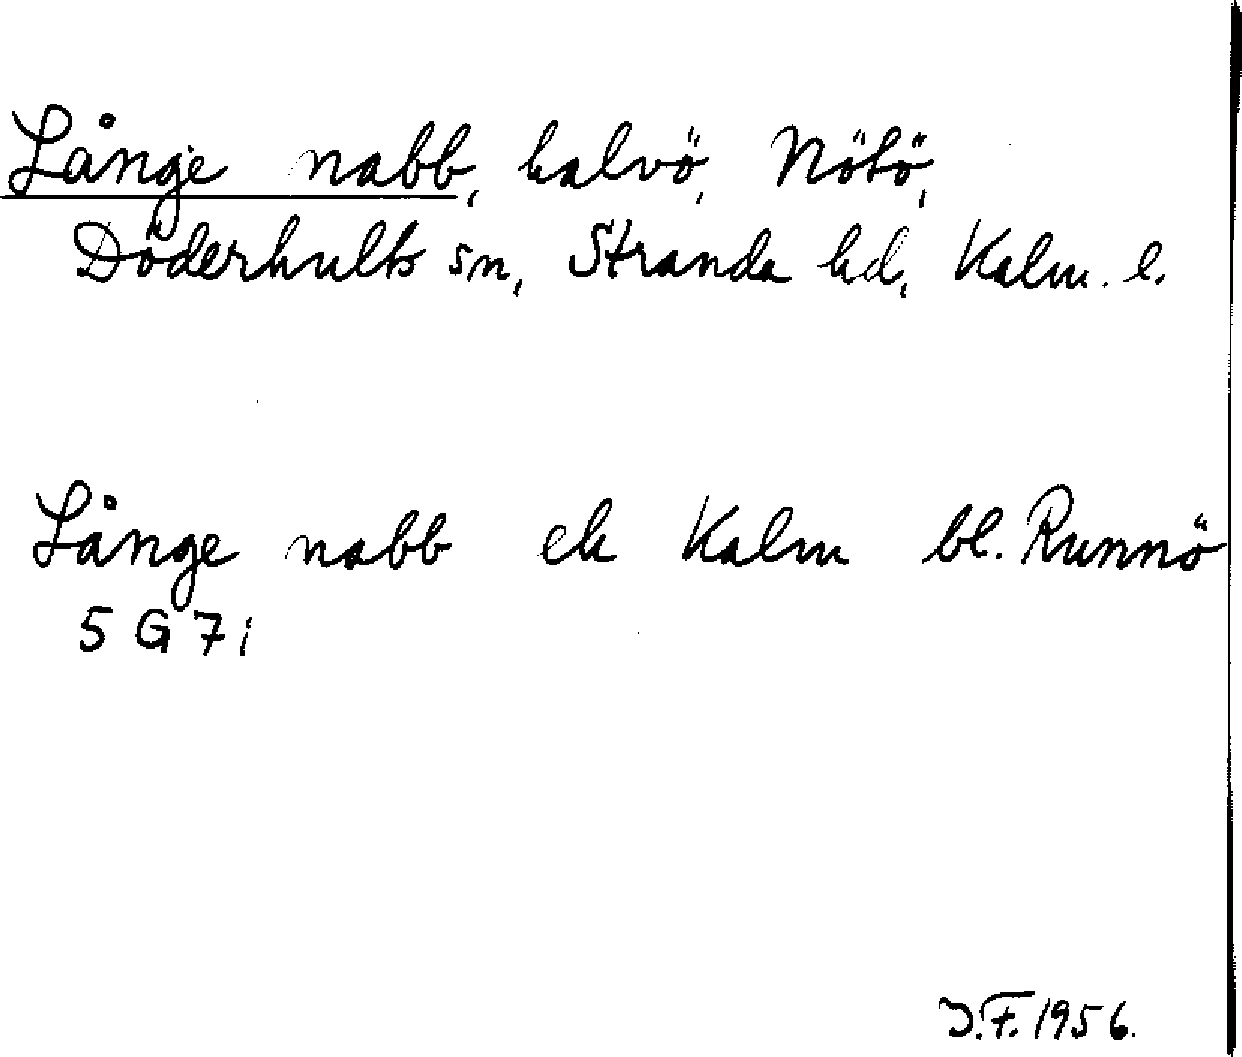 Långe nabb, halvö, Nötö,
Döderhults sn, Stranda hd, Kalm. l.
Långe nabb ek Kalm bl. Runnö
5 G 7 i
J.F. 1956.